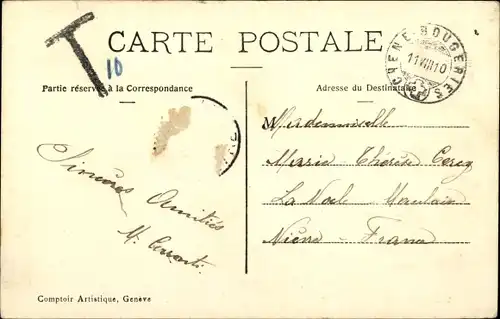 T
10
CARTE POSTALE
CHENE-BOUGERIES
11 VIII 10
Partie réservée à la Correspondance
Adresse du Destinataire
Mademoiselle
Marie Thérèse
La Nocle Maulaix
Nièvre - France
Sincères Amitiés
M.
Comptoir Artistique, Genève